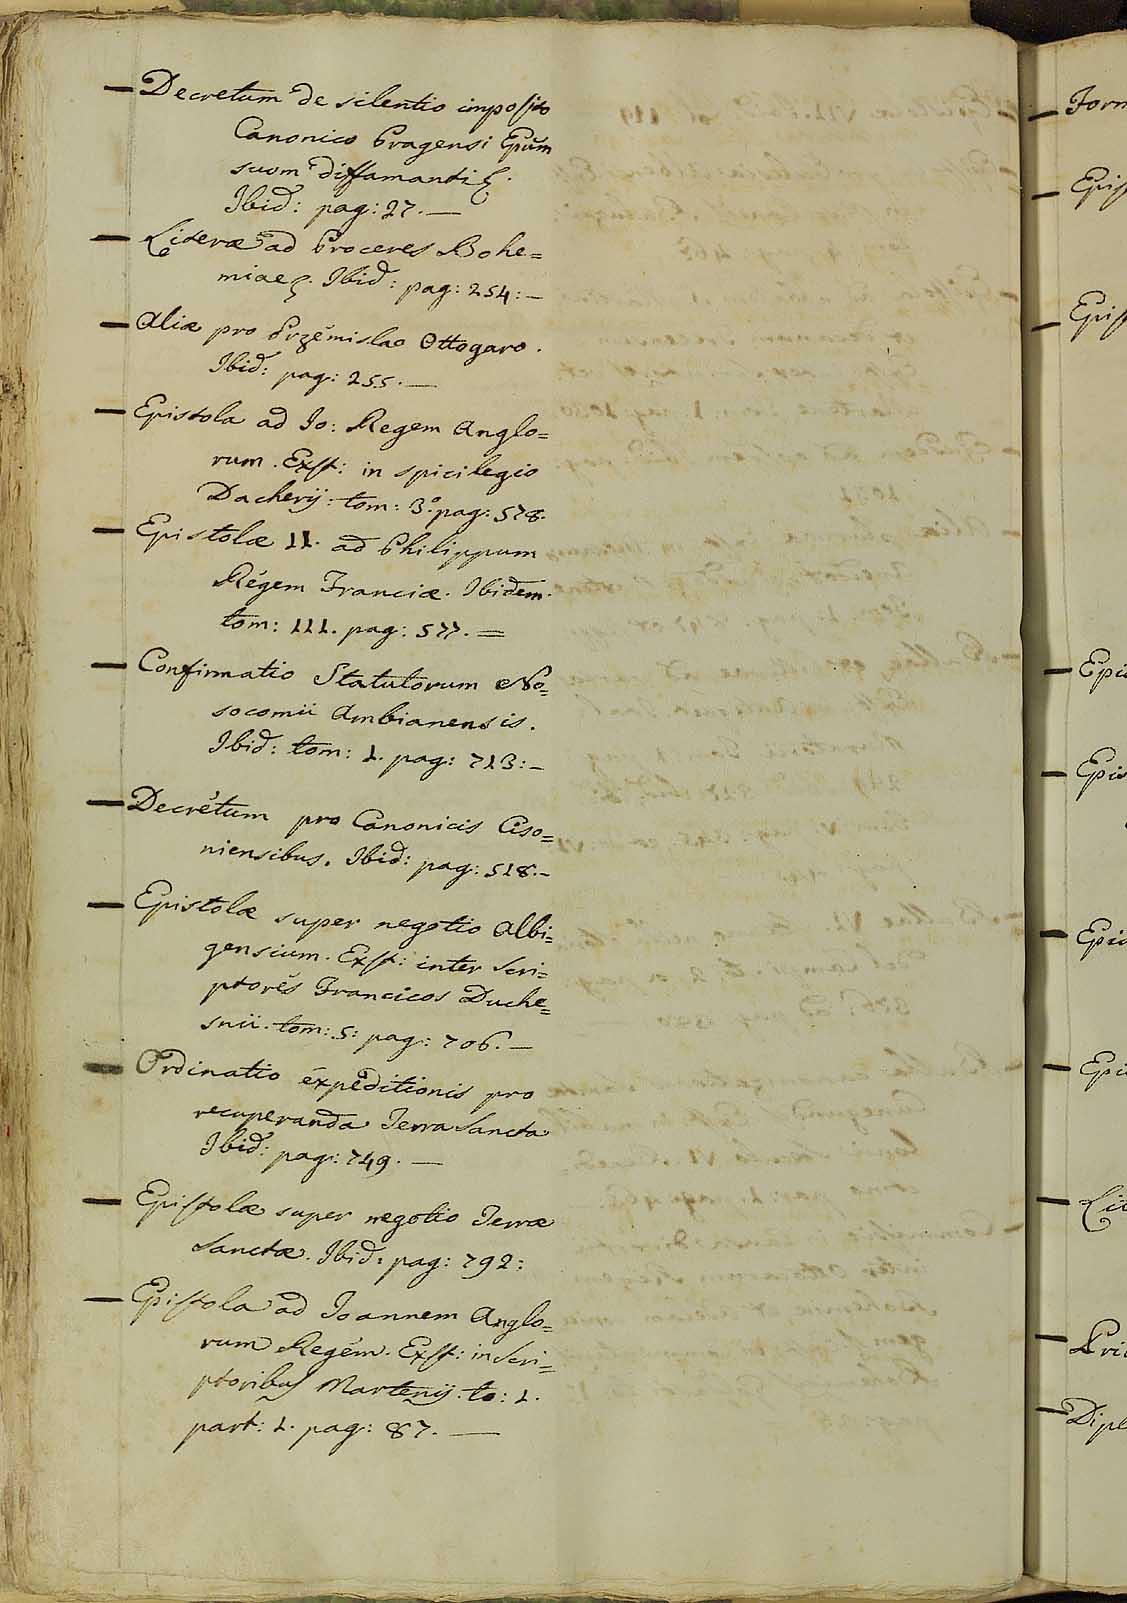 — Decretum de silentio imposito
Canonico Pragensi Epũm
suum diffamanti.
Ibid: pag: 27. —
— Literæ ad Proceres Bohe=
miae. Ibid: pag: 254: —
— Aliæ pro Przémislao Ottogaro.
Ibid: pag: 255. —
— Epistola ad Io: Regem Anglo=
rum. Exst: in spicilegio
Dacherij: tom: 3º pag: 578.
— Epistolæ II. ad Philippum
Régem Franciæ. Ibidem.
tom: III. pag: 577. =
— Confirmatio Statutorum No=
socomii Ambianensis.
Ibid: tom: I. pag: 713: —
— Decrétum pro Canonicis Ciso=
niensibus. Ibid: pag: 518. —
— Epistolæ super negotio Albi=
gensium. Exst: inter Scri=
ptorés Francicos Duche=
snii. tom: 5: pag: 706. —
— Ordinatio éxpéditionis pro
recuperanda Terra Sancta
Ibid: pag: 749. —
— Epistolæ super negotio Terræ
Sanctæ. Ibid: pag: 792:
— Epistola ad Joannem Anglo=
rum Regém. Exst: in Scri=
ptoribus Martenij. to: I.
part: I. pag: 87. —
— Form
— Epist
— Epist
— Epis
— Epis
— Epis
— Epis
— Lit
— Pri
— Dipl